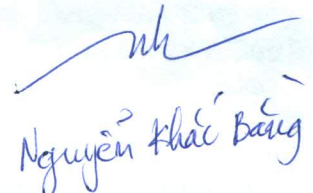 Nguyễn Khắc Bằng